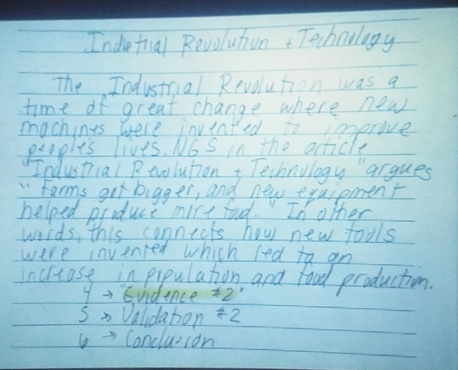 Industrial Revolution + Technology
The Industrial Revolution was a
time of great change where new
machines were invented to improve
peoples lives. NGS in the article
"Industrial Revolution + Technology" argues
"farms got bigger, and new equipment
helped produce more food." In other
words, this connects how new tools
were invented which led to an
increase in pipulation and food production.
4 → "Evidence #2"
5 → Validation #2
6 → Conclusion